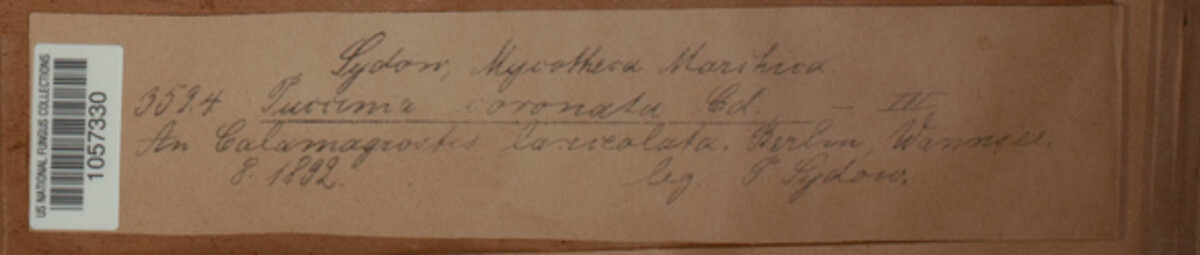 US NATIONAL FUNGUS COLLECTIONS
1057330
Sydow, Mycotheca Marchica
3594 Puccinia coronata Cd. – III
An Calamagrostis lanceolata. Berlin, Wannsee.
8. 1892. leg. P. Sydow.